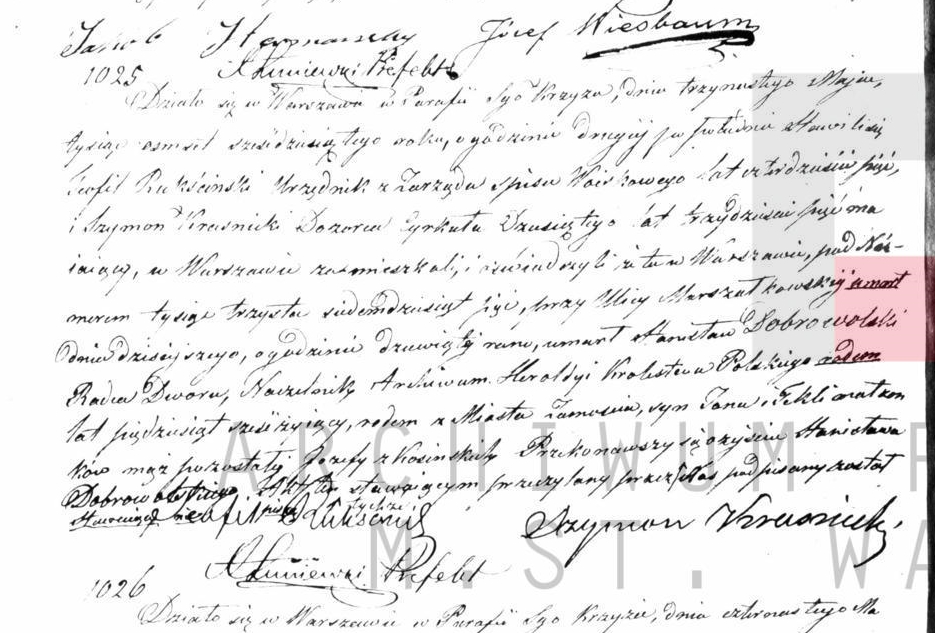 Jakob Józef Wiesbaum
1025 Prefekt
Działo się w Warszawie w Parafii Sgo Krzyża, dnia trzynastego Maja,
tysiąc osmset sześćdziesiątego roku, o godzinie drugiej po południu stawili się
Teofil Urzędnik z Zarządu spisu Woiskowego lat czterdzieści pięć,
i Szymon Krasnicki Dozorca Cyrkułu Dziesiątego lat trzydzieści pięć ma
iący, w Warszawie zamieszkali, i oświadczyli że tu w Warszawie, pod Nu-
merem tysiąc trzysta siedemdziesiąt pięć, przy Ulicy Marszałkowskiej umarł
dnia dzisiejszego, o godzinie dziewiątej rano, umarł Stanisław Dobrowolski
Radca Dworu, Naczelnik Archiwum Heroldyi Królestwa Polskiego rodem
lat pięćdziesiąt sześć żyiący, rodem z Miasta Zamościa, syn Jana i Tekli małżon
ków mąż pozostałej Józefy z Kosinskich. Przekonawszy się o zejściu Stanisława
Dobrowolskiego, Akt ten stawaiącym przeczytany przez Nas podpisany został
Teofil Szymon Krasnicki
1026 Prefekt
Działo się w Warszawie w Parafii Sgo Krzyża, dnia czternastego Ma
ARCHIWUM P
M.ST. WA